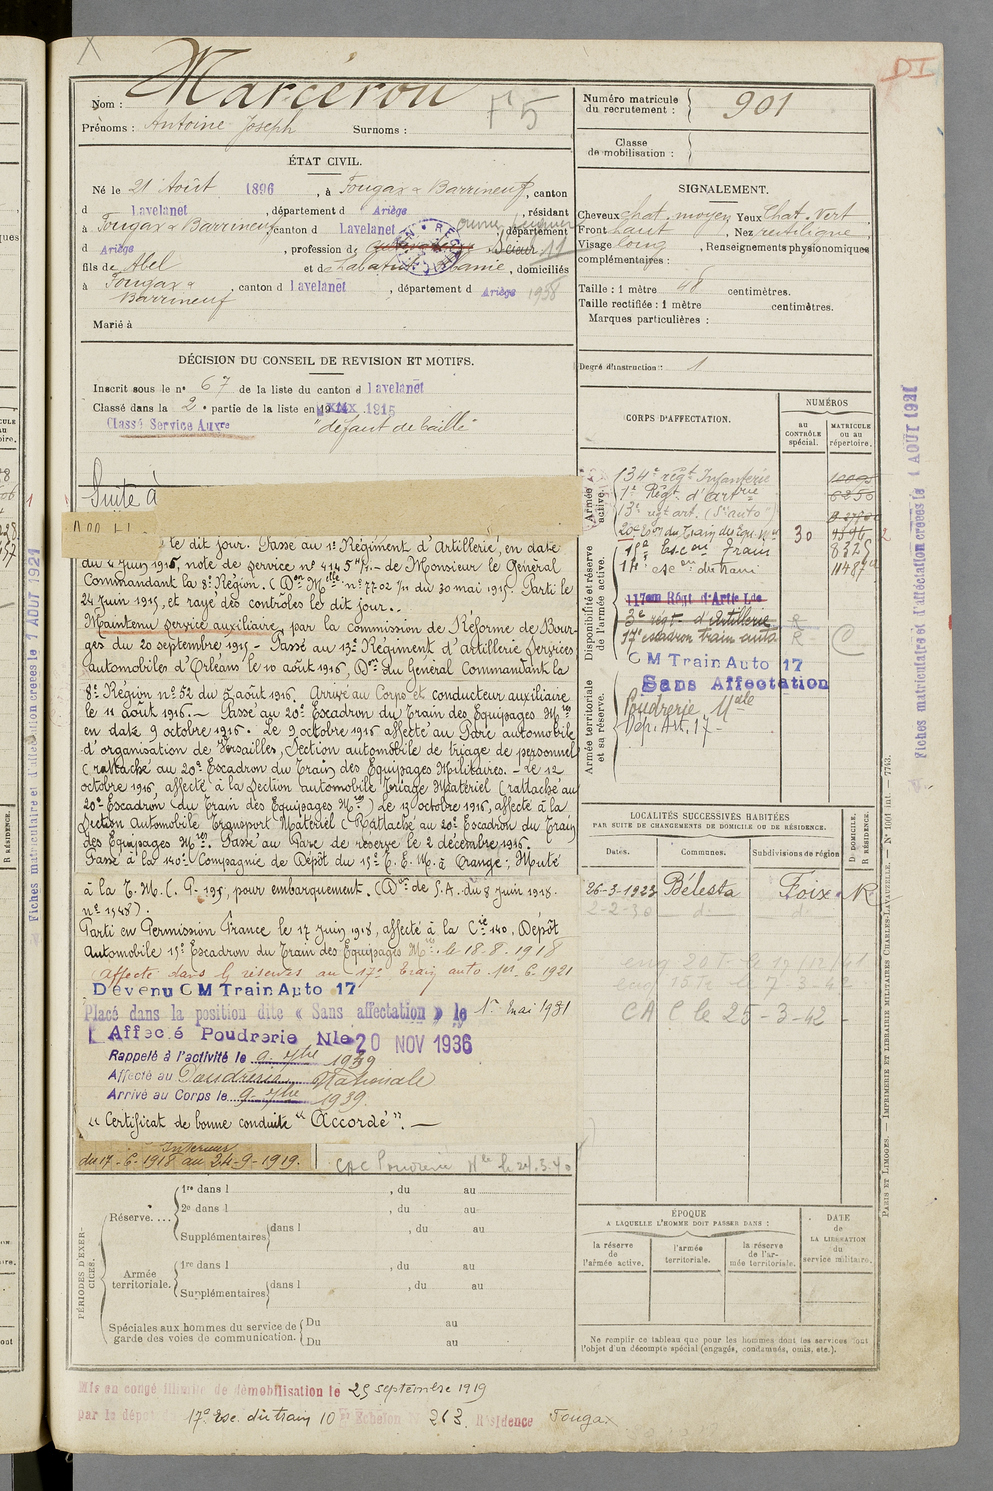 Marcérou
Nom :
Prénoms : Antoine Joseph Surnoms :
F 5
ÉTAT CIVIL.
Né le 21 Août 1896, à Fougax & Barrineuf, canton
d Lavelanet, département d Ariège, résidant
à Fougax & Barrineuf, canton d Lavelanet, département
d Ariège, profession de Scieur 11
fils de Abel et de Labatut, domiciliés
à Fougax & Barrineuf, canton d Lavelanet, département d Ariège 1938
Marié à
DÉCISION DU CONSEIL DE REVISION ET MOTIFS.
Inscrit sous le n° 67 de la liste du canton d Lavelanet
Classé dans la 2e partie de la liste en 1915
Classé Service Auxre "défaut de taille"
Suite à
le dit jour. Passé au 1er Régiment d'Artillerie, en date
du 4 juin 1915, note de service n° 4145 - de Monsieur le Général
Commandant la 8e Région. (Don Melle n° 7702 1/11 du 30 mai 1915. Parti le
24 juin 1915, et rayé des contrôles le dit jour..
Maintenu service auxiliaire, par la commission de Réforme de Bour-
ges du 20 septembre 1915 - Passé au 13e Régiment d'artillerie Services
automobiles d'Orléans le 10 août 1916, Don du Général Commandant la
8e Région n° 52 du 5 août 1916. Arrivé au Corps et conducteur auxiliaire
le 11 août 1916. - Passé au 20e Escadron du Train des Equipages Mres
en date 9 octobre 1916. Le 9 octobre 1916 affecté au Parc automobile
d'organisation de Versailles, Section automobile de triage de personnel
(rattaché au 20e Escadron du Train des Equipages Militaires. - Le 12
octobre 1916, affecté à la Section automobile Triage Matériel (rattaché au
20e Escadron du Train des Equipages Mres) Le 13 octobre 1916, affecté à la
Section Automobile Transport Matériel (Rattaché au 20e Escadron du Train
des Equipages Mres. Passé au Parc de réserve le 2 décembre 1916.
Passé à la 140e Compagnie de Dépôt du 15e T. E. M. à Orange ; Muté
à la T. M. C. G - 195, pour embarquement. (Don de S.A. du 8 juin 1918.
n° 1548).
Parti en Permission France le 17 juin 1918, affecté à la Cie 140, Dépôt
Automobile 15e Escadron du Train des Equipages Mres le 18-8-1918
affecté dans les réserves au 17e train auto 1er-6-1921
Devenu C M Train Auto 17
Placé dans la position dite « Sans affectation » le 1er mai 1931
Affecté Poudrerie Nle 20 NOV 1936
Rappelé à l'activité le 9 - 7bre 1939
Affecté au Poudrerie Nationale
Arrivé au Corps le 9 - 7bre 1939.
" Certificat de bonne conduite " Accordé ". -
Intérieur
du 17-6-1918 au 24-9-1919.
CAC Poudrerie Nle le 24.3.40
PÉRIODES D'EXERCICES.
Réserve.... 1re dans l , du au
2e dans l , du au
Supplémentaires dans l , du au
Armée territoriale. 1re dans l , du au
Supplémentaires dans l , du au
Spéciales aux hommes du service de garde des voies de communication. Du au
Du au
Mis en congé illimité de démobilisation le 25 septembre 1919
par le dépôt 17e Esc. du train 10e Echelon N° 263, Résidence Fougax
DI
Numéro matricule du recrutement : 901
Classe de mobilisation :
SIGNALEMENT.
Cheveux chat. moyen Yeux Chat. vert
Front haut, Nez rectiligne,
Visage long, Renseignements physionomiques
complémentaires :
Taille : 1 mètre 48 centimètres.
Taille rectifiée : 1 mètre centimètres.
Marques particulières :
Degré d'instruction : 1
CORPS D'AFFECTATION.
NUMÉROS
au CONTRÔLE spécial.
MATRICULE ou au répertoire.
Armée active.
134e régt Infanterie
1er Régt. d'artrie
13e régt art. (Sn auto)
20e Eon du Train des Equ. Mres 30
Disponibilité et réserve de l'armée active.
15e Esc on Train 8325
14e esc on du train 11487
117em Régt d'Artie Lde
3e régt d'Artillerie R
17e escadron train auto R C
C M Train Auto 17
Sans Affectation
Armée territoriale et sa réserve.
Poudrerie Nale
Dép. Art. 17 -
LOCALITÉS SUCCESSIVES HABITÉES
PAR SUITE DE CHANGEMENTS DE DOMICILE OU DE RÉSIDENCE.
Dates. Communes. Subdivisions de région D. DOMICILE. R. RÉSIDENCE.
26-3-1923 Bélesta Foix R
2-2-30 d° d°
CAC le 25-3-42 -
ÉPOQUE
A LAQUELLE L'HOMME DOIT PASSER DANS :
la réserve de l'armée active.
l'armée territoriale.
la réserve de l'armée territoriale.
DATE de LA LIBÉRATION du service militaire.
Ne remplir ce tableau que pour les hommes dont les services font
l'objet d'un décompte spécial (engagés, condamnés, omis, etc.).
Fiches matriculaire et d'affectation créées le 1 AOUT 1921
PARIS ET LIMOGES. — IMPRIMERIE ET LIBRAIRIE MILITAIRES CHARLES-LAVAUZELLE. — N° 1001 int. — 7743.
Fiches matriculaire et d'affectation créées le 1 AOUT 1921
R RÉSIDENCE.